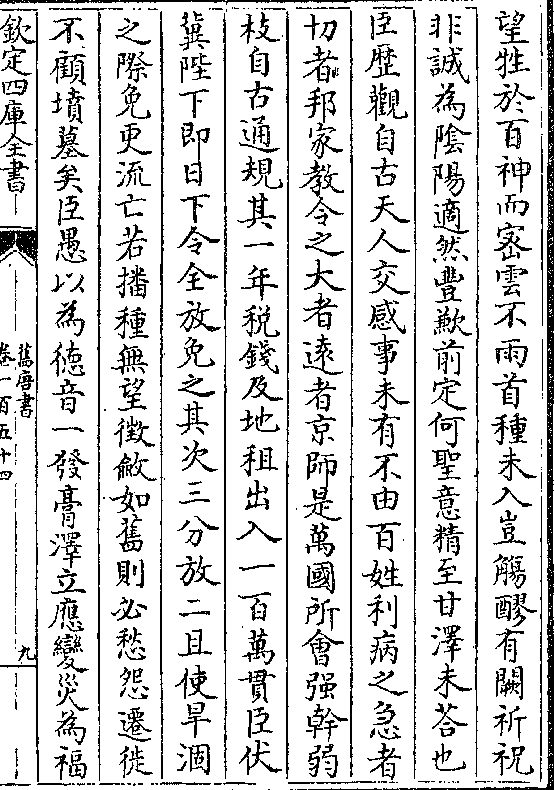 望牲於百神而密雲不雨首種未入豈觴醪有闕祈祝
非誠為陰陽適然豐歉前定何聖意精至甘澤未荅也
臣歴觀自古天人交感事未有不由百姓利病之急者
切者邦家教令之大者逺者京師是萬國所會强幹弱
枝自古通規其一年税錢及地租出入一百萬貫臣伏
冀陛下即日下令全放免之其次三分放二且使旱涸
之際免更流亡若播種無望徵斂如舊則必愁怨遷徙
不顧墳墓矣臣愚以為徳音一發膏澤立應變災為福
欽定四庫全書
舊唐書
卷一百五十四
九